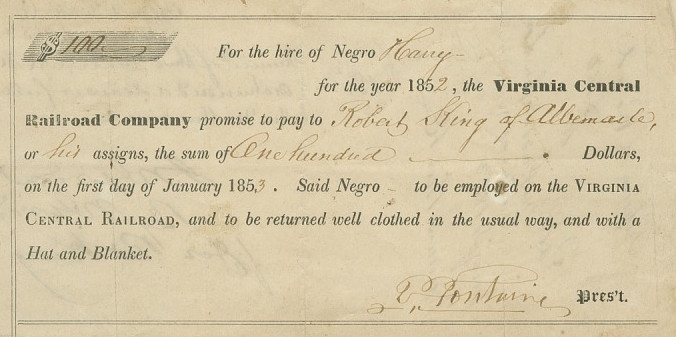 $ 100
For the hire of Negro Harry
for the year 1852, the Virginia Central
Railroad Company promise to pay to Robert King of Albemarle,
or his assigns, the sum of One hundred . Dollars,
on the first day of January 1853. Said Negro - to be employed on the VIRGINIA
CENTRAL RAILROAD, and to be returned well clothed in the usual way, and with a
Hat and Blanket.
Fontaine Pres't.